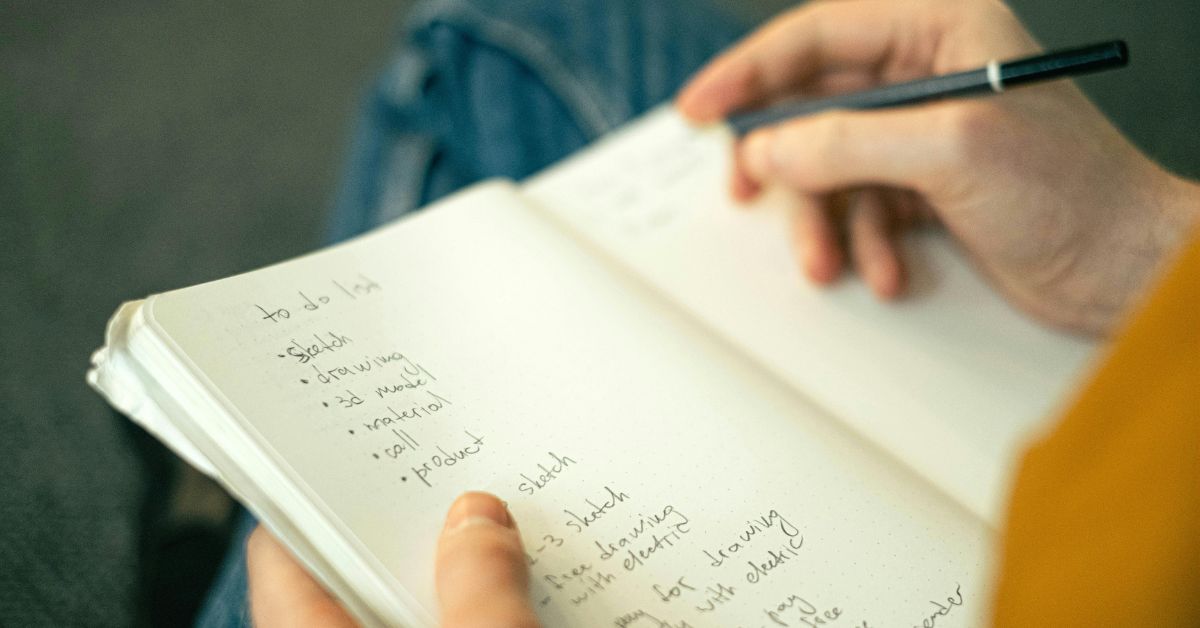 to do list
• sketch
• drawing
• 3d model
• material
• call
• product
sketch
-3 sketch
- free drawing
with electric
for drawing
with electric
pay
free